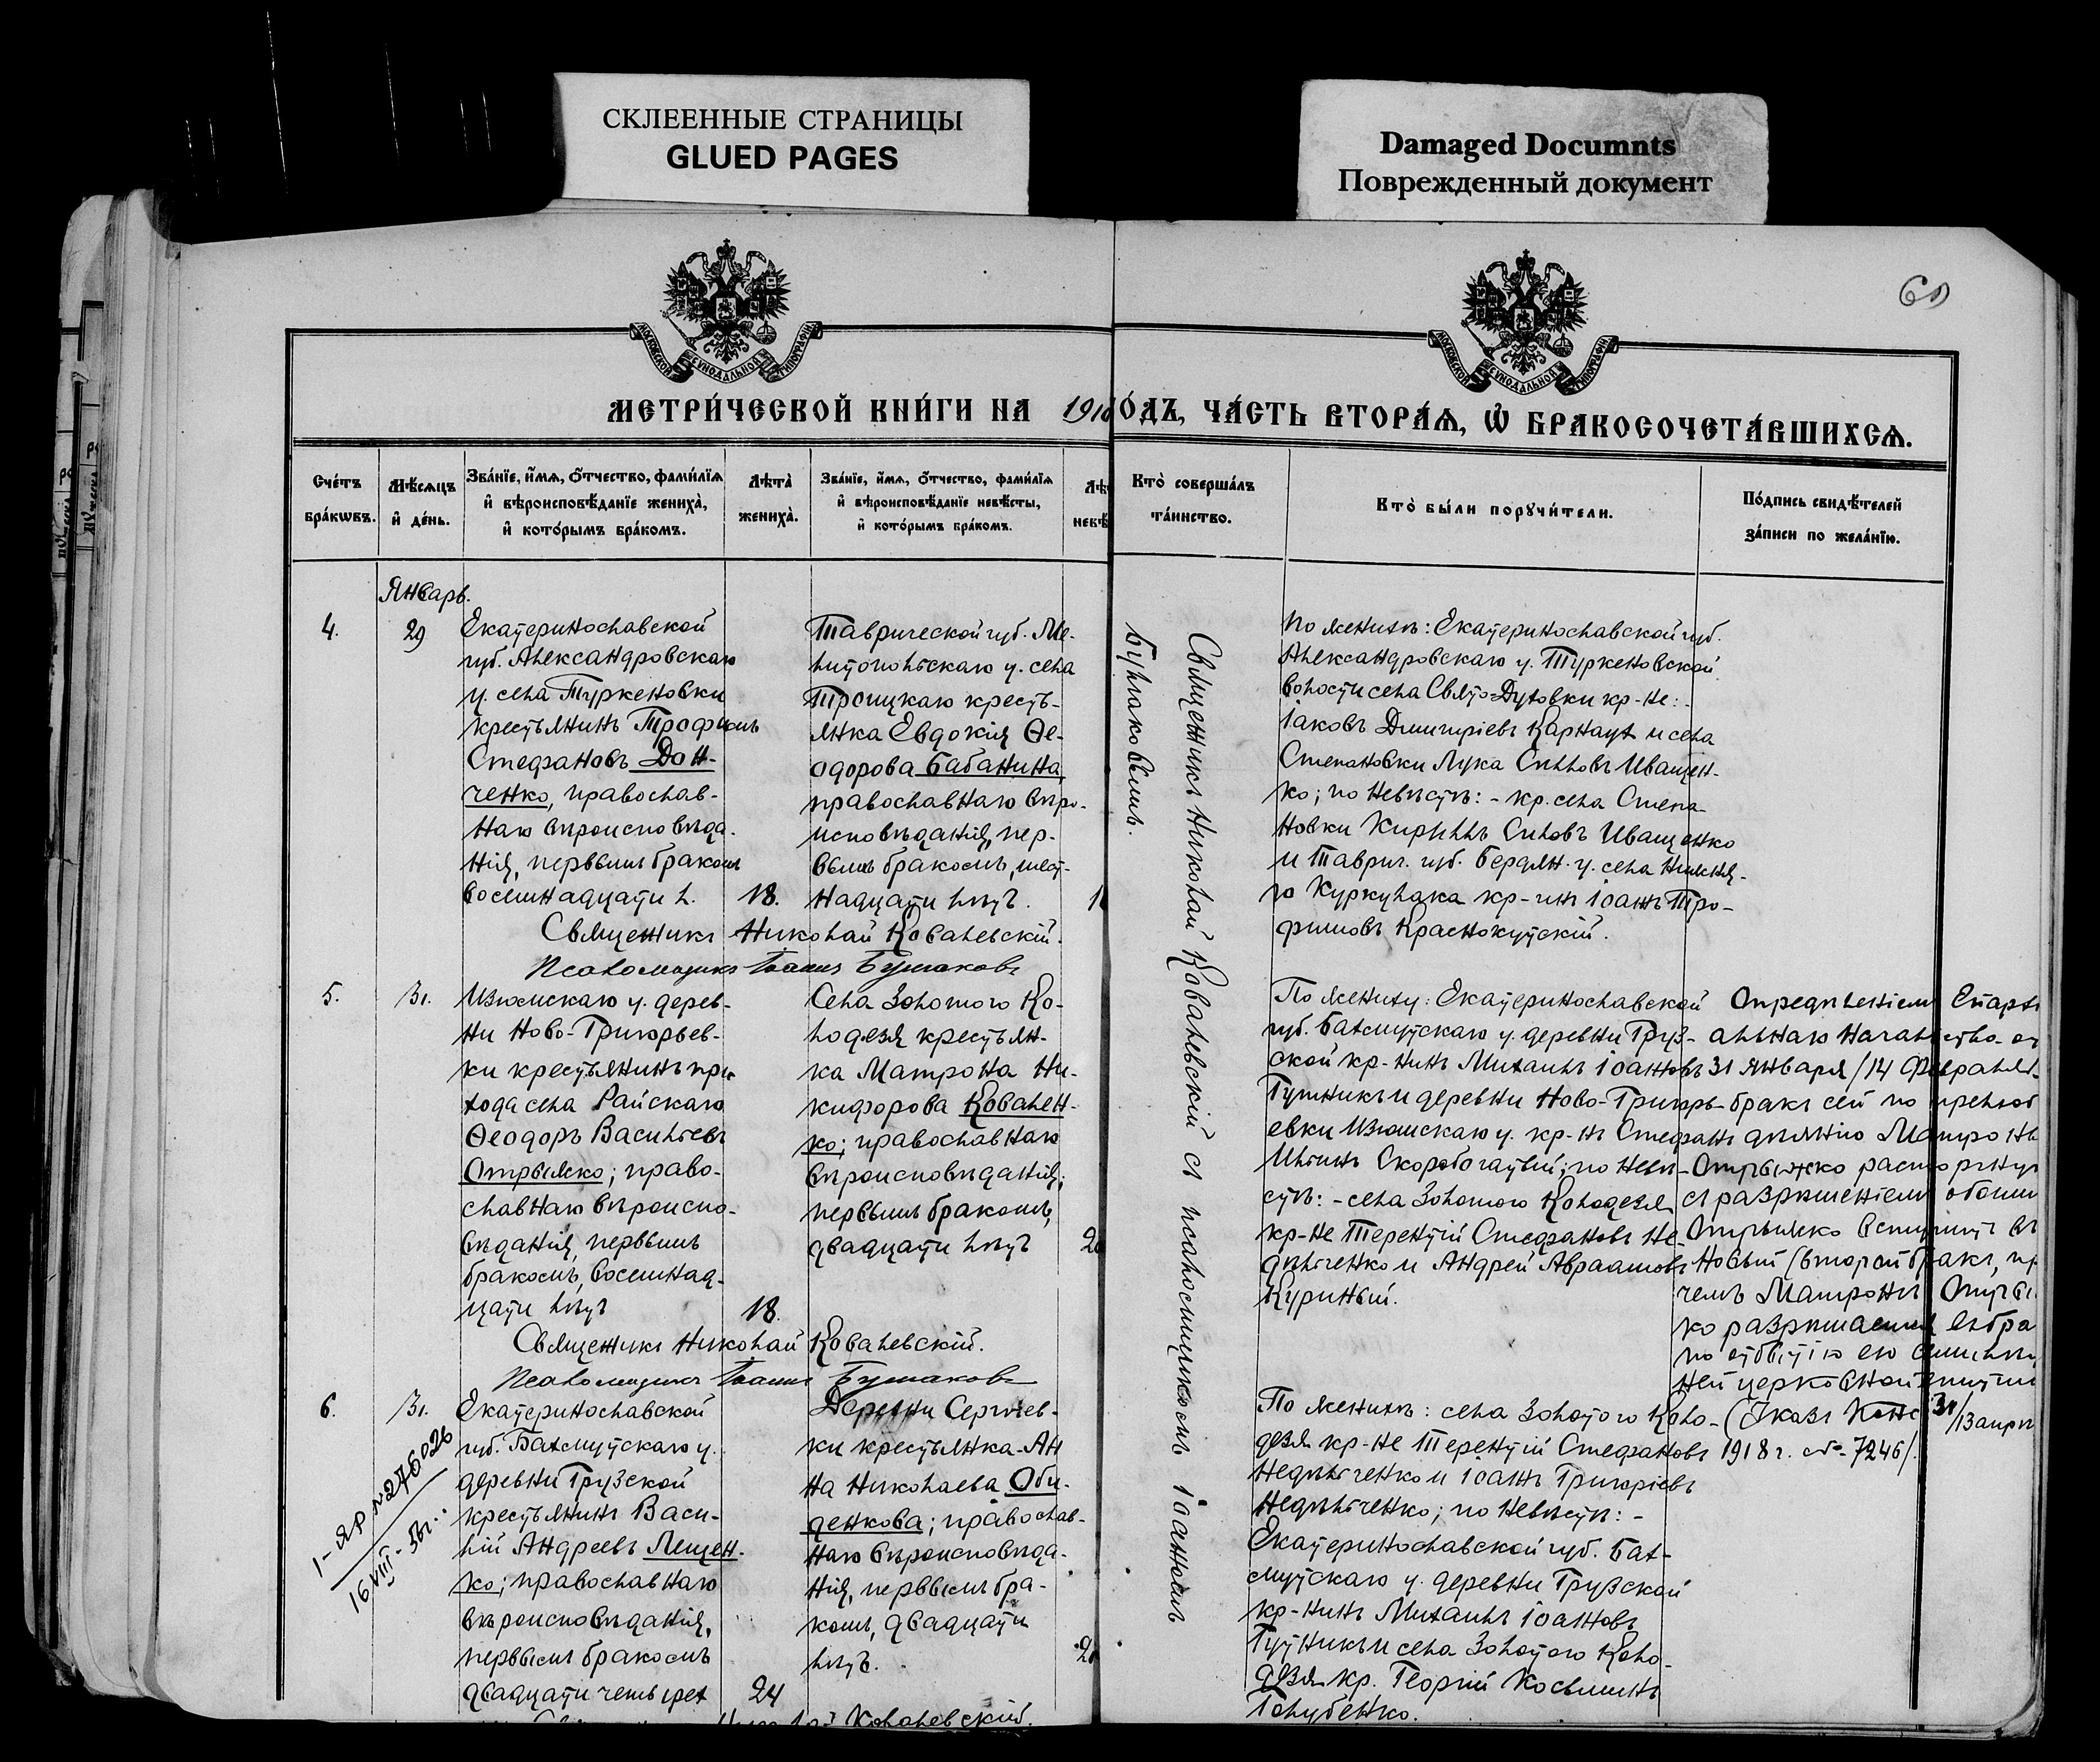 СКЛЕЕННЫЕ СТРАНИЦЫ
GLUED PAGES
Damaged Documnts
Поврежденный документ
МОСКОВСКОЙ СѴНОДАЛЬНОЙ ТИПОГРАФІИ
МОСКОВСКОЙ СѴНОДАЛЬНОЙ ТИПОГРАФІИ
МЕТРИ́ЧЕСКОЙ КНИ́ГИ НА 191
О́ДЪ, ЧА́СТЬ ВТОРА́Ѧ, Ѡ҆ БРАКОСОЧЕТА́ВШИХСѦ.
Сче́тъ
бра́кѡвъ.
Мѣ́сѧцъ
и҆ де́нь.
Зва́нїе, и҆́мѧ, ѻ҆́тчество, фами́лїѧ
и҆ вѣроисповѣ́данїе жениха̀,
и҆ кото́рымъ бра́комъ.
Лѣта̀
жениха̀.
Зва́нїе, и҆́мѧ, ѻ҆́тчество, фами́лїѧ
и҆ вѣроисповѣ́данїе невѣ́сты,
и҆ кото́рымъ бра́комъ.
Лѣ
невѣ
Кто̀ соверша́лъ
та́инство.
Кто̀ бы́ли порꙋчи́тели.
По́дпись свидѣ́телей
за́писи по жела́нїю.
Январь.
4.
29
Екатеринославской
губ. Александровскаго
у. села Туркеновки
крестьянинъ Трофимъ
Стефановъ Дон-
ченко, православ-
наго вѣроисповѣда-
нія, первымъ бракомъ
восемнадцати л.
18.
Таврической губ. Ме-
литопольскаго у. села
Троицкаго кресть-
янка Евдокія Ѳе-
одорова Бабанина,
православнаго вѣро-
исповѣданія, пер-
вымъ бракомъ, шест-
надцати лѣтъ.
1
Священникъ Николай Ковалевскій.
Псаломщикъ Іоаннъ Бушаковъ
Священникъ Николай Ковалевскій съ псаломщикомъ Іоанномъ
Бушаковымъ.
По женихѣ: Екатеринославской губ.
Александровскаго у. Туркеновской
волости села Свято-Духовки кр-не:
Іаковъ Димитріевъ Карнаух и села
Степановки Лука Силовъ Иващен-
ко; по невѣстѣ: - кр. села Степа-
новки Кириллъ Силовъ Иващенко
и Таврич. губ. Бердян. у. села Нижня-
го Куркулака кр-инъ Іоаннъ Тро-
фимовъ Краснокутскій.
5.
31.
Изюмскаго у. дерев-
ни Ново-Григорьев-
ки крестьянинъ при-
хода села Райскаго
Ѳеодоръ Васильевъ
Отрыжко; право-
славнаго вѣроиспо-
вѣданія, первымъ
бракомъ, восемнад-
цати лѣтъ
18.
Села Золотого Ко-
лодезя крестьян-
ка Матрона Ни-
кифорова Ковален-
ко; православнаго
вѣроисповѣданія;
первымъ бракомъ,
двадцати лѣтъ
20
Священникъ Николай Ковалевскій.
Псаломщикъ Іоаннъ Бушаковъ
По жениху: Екатеринославской
губ. Бахмутскаго у. деревни Груз-
ской кр-нинъ Михаилъ Іоанновъ
Гутникъ и деревни Ново-Григорь-
евки Изюмскаго у. кр-нъ Стефанъ
Ильинъ Скоробогатый; по невѣ-
стѣ: - села Золотого Колодезя
кр-не Терентій Стефановъ Не-
дѣльченко и Андрей Авраамовъ
Куриный.
Опредѣленіемъ Епархі
альнаго Начальства от
31 января/14 Февраля
бракъ сей по прелюб
дѣянію Матроны
Отрыжко расторгнут
съ разрѣшеніемъ
Отрыжко вступить въ
новый (второй) бракъ, пр
чемъ Матронѣ Отры
ко разрѣшается
по отбытіи ею семилѣт
ней церковной епитим
(Указъ 31/13 апрѣ
1918 г. № 7246).
6.
31.
1-ЯР №276026
16 VIII-
Екатеринославской
губ. Бахмутскаго у.
деревни Грузской
крестьянинъ Васи-
лій Андреевъ Лещен-
ко; православнаго
вѣроисповѣданія,
первымъ бракомъ
двадцати четырех
24
Деревни Сергѣев-
ки крестьянка Ан
на Николаева Оби-
денкова; православ-
наго вѣроисповѣда-
нія, первымъ бра-
комъ, двадцати
лѣтъ.
20
По женихѣ: села Золотого Коло-
дезя кр-не Терентій Стефановъ
Недѣльченко и Іоаннъ Григоріевъ
Недѣльченко; по невѣстѣ: -
Екатеринославской губ. Бах-
мутскаго у. деревни Грузской
кр-нинъ Михаилъ Іоанновъ
Гутникъ и села Золотого Коло-
дезя кр. Георгій Косьминъ
Голубенко.
Николай Ковалевскій.